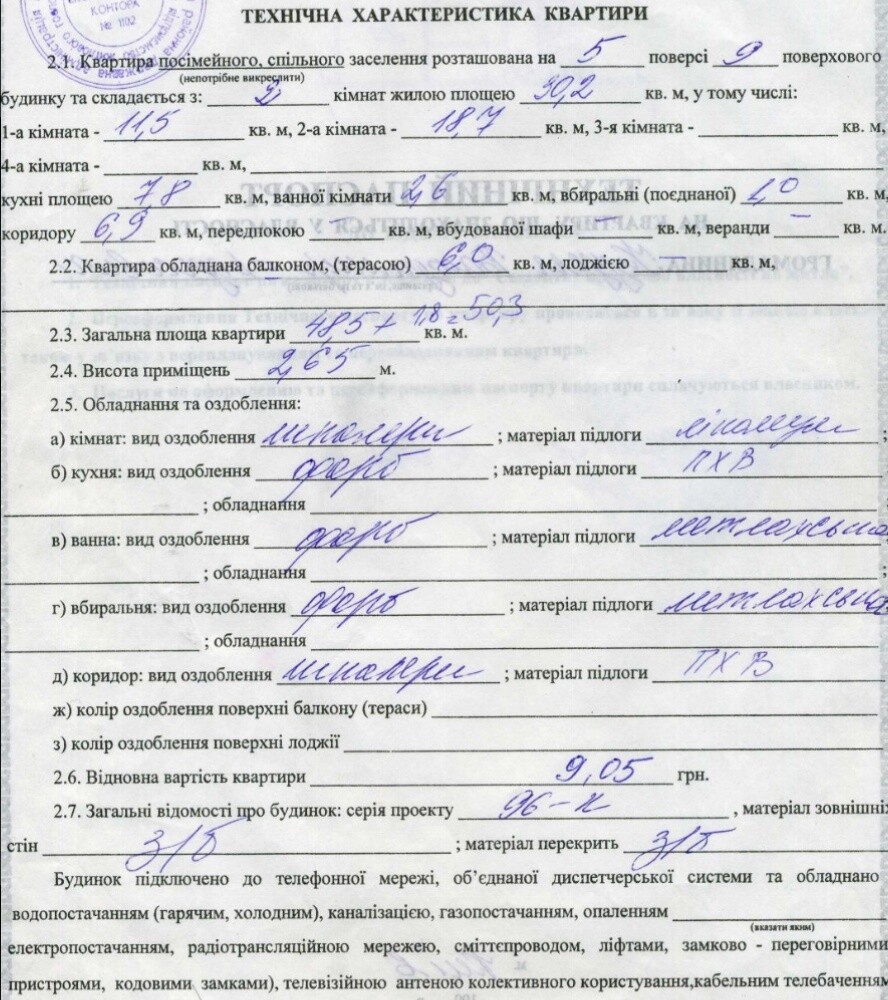 КОНТОРА
№ 1102
ТЕХНІЧНА ХАРАКТЕРИСТИКА КВАРТИРИ
2.1. Квартира посімейного, спільного заселення розташована на 5 поверсі 9 поверхового
(непотрібне викреслити)
будинку та складається з: 2 кімнат жилою площею 30,2 кв. м, у тому числі:
1-а кімната - 11,5 кв. м, 2-а кімната - 18,7 кв. м, 3-я кімната - кв. м,
4-а кімната - кв. м,
кухні площею 7,8 кв. м, ванної кімнати 2,6 кв. м, вбиральні (поєднаної) 1,0 кв. м,
коридору 6,9 кв. м, передпокою — кв. м, вбудованої шафи — кв. м, веранди — кв. м.
2.2. Квартира обладнана балконом, (терасою) 6,0 кв. м, лоджією — кв. м,
2.3. Загальна площа квартири 48,5 + 1,8 = 50,3 кв. м.
2.4. Висота приміщень 2,65 м.
2.5. Обладнання та оздоблення:
а) кімнат: вид оздоблення шпалери ; матеріал підлоги лінолеум ;
б) кухня: вид оздоблення фарб ; матеріал підлоги ПХВ
; обладнання
в) ванна: вид оздоблення фарб ; матеріал підлоги метлахська
; обладнання ;
г) вбиральня: вид оздоблення фарб ; матеріал підлоги метлахська
; обладнання
д) коридор: вид оздоблення шпалери ; матеріал підлоги ПХВ
ж) колір оздоблення поверхні балкону (тераси)
з) колір оздоблення поверхні лоджії
2.6. Відновна вартість квартири 9,05 грн.
2.7. Загальні відомості про будинок: серія проекту 96-К , матеріал зовнішніх
стін З/Б ; матеріал перекрить З/Б
Будинок підключено до телефонної мережі, об’єднаної диспетчерської системи та обладнано
водопостачанням (гарячим, холодним), каналізацією, газопостачанням, опаленням
(вказати яким)
електропостачанням, радіотрансляційною мережею, сміттєпроводом, ліфтами, замково - переговірними
пристроями, кодовими замками), телевізійною антеною колективного користування,кабельним телебаченням